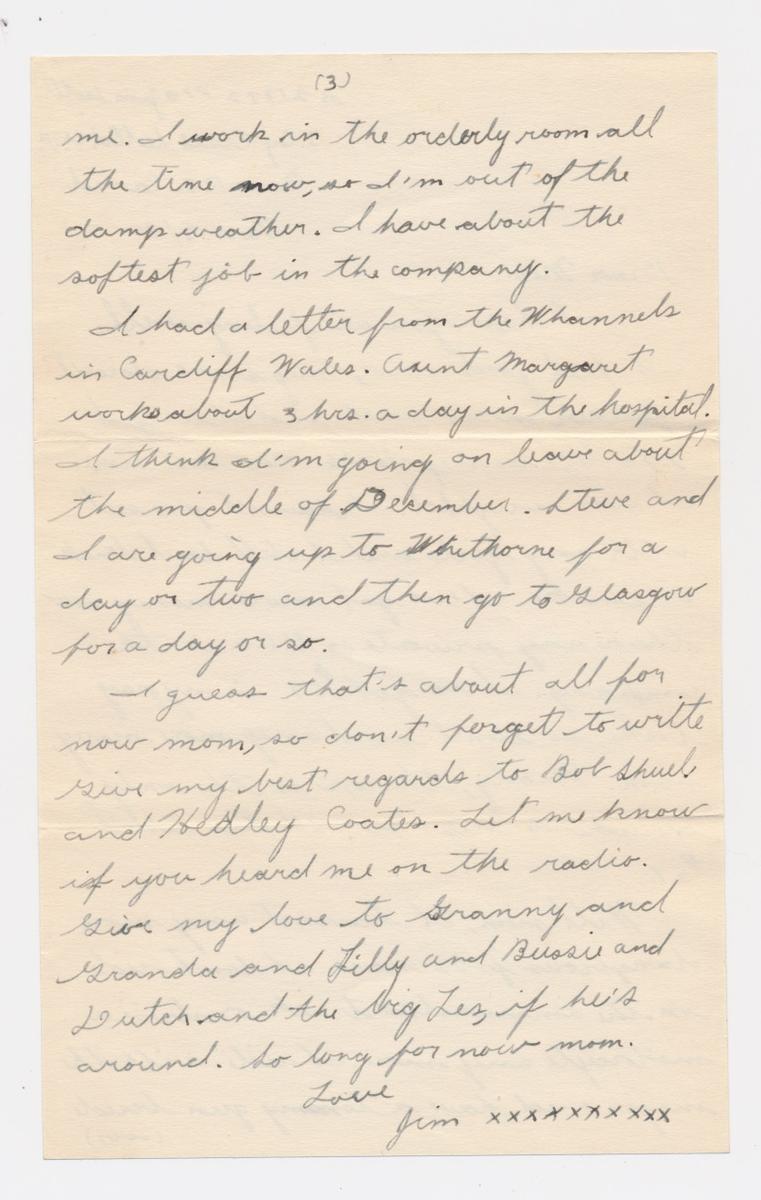 (3)
me. I work in the orderly room all
the time now, so I'm out of the
damp weather. I have about the
softest job in the company.
I had a letter from the Whannels
in Cardiff Wales. Aunt Margaret
works about 3 hrs. a day in the hospital.
I think I'm going on leave about
the middle of December. Steve and
I are going up to Whithorne for a
day or two and then go to Glasgow
for a day or so.
I guess that's about all for
now mom, so don't forget to write
Give my best regards to Bob Shuel
and Hedley Coates. Let me know
if you heard me on the radio.
Give my love to Granny and
Granda and Lilly and Bessie and
Dutch and the big Les, if he's
around. So long for now mom.
Love
Jim xxxxxxxxxx